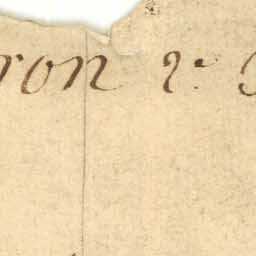 ron 2: